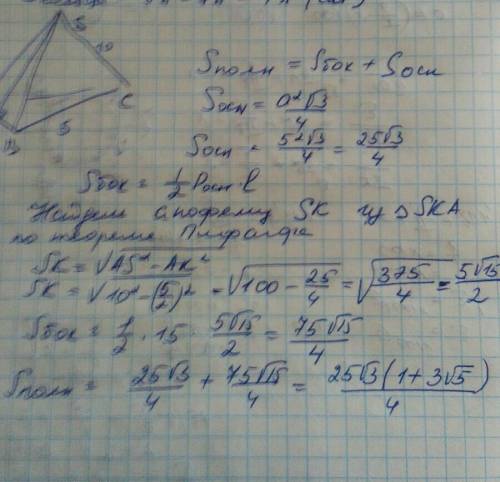 S 10
C
5
Sполн = Sбок + Sосн
Sосн = a²√3/4
Sосн = 5²√3/4 = 25√3/4
Sбок = 1/2 Pосн · l
Найдем апофему SK из △SKA
по теореме Пифагора
SK = √AS² - AK²
SK = √10² - (5/2)² = √100 - 25/4 = √375/4 = 5√15/2
Sбок = 1/2 · 15 · 5√15/2 = 75√15/4
Sполн = 25√3/4 + 75√15/4 = 25√3(1+3√5)/4